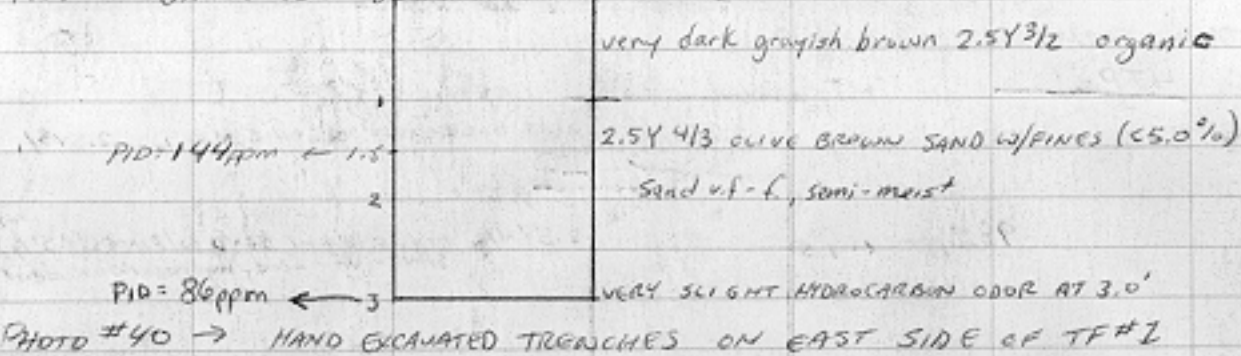 very dark grayish brown 2.5Y 3/2 organic
1
2.5Y 4/3 OLIVE BROWN SAND W/FINES (<5.0%)
PID=144ppm ← 1.5
Sand v.f-f, semi-moist
2
PID= 86ppm ← 3
VERY SLIGHT HYDROCARBON ODOR AT 3.0'
PHOTO #40 → HAND EXCAVATED TRENCHES ON EAST SIDE OF TF#1